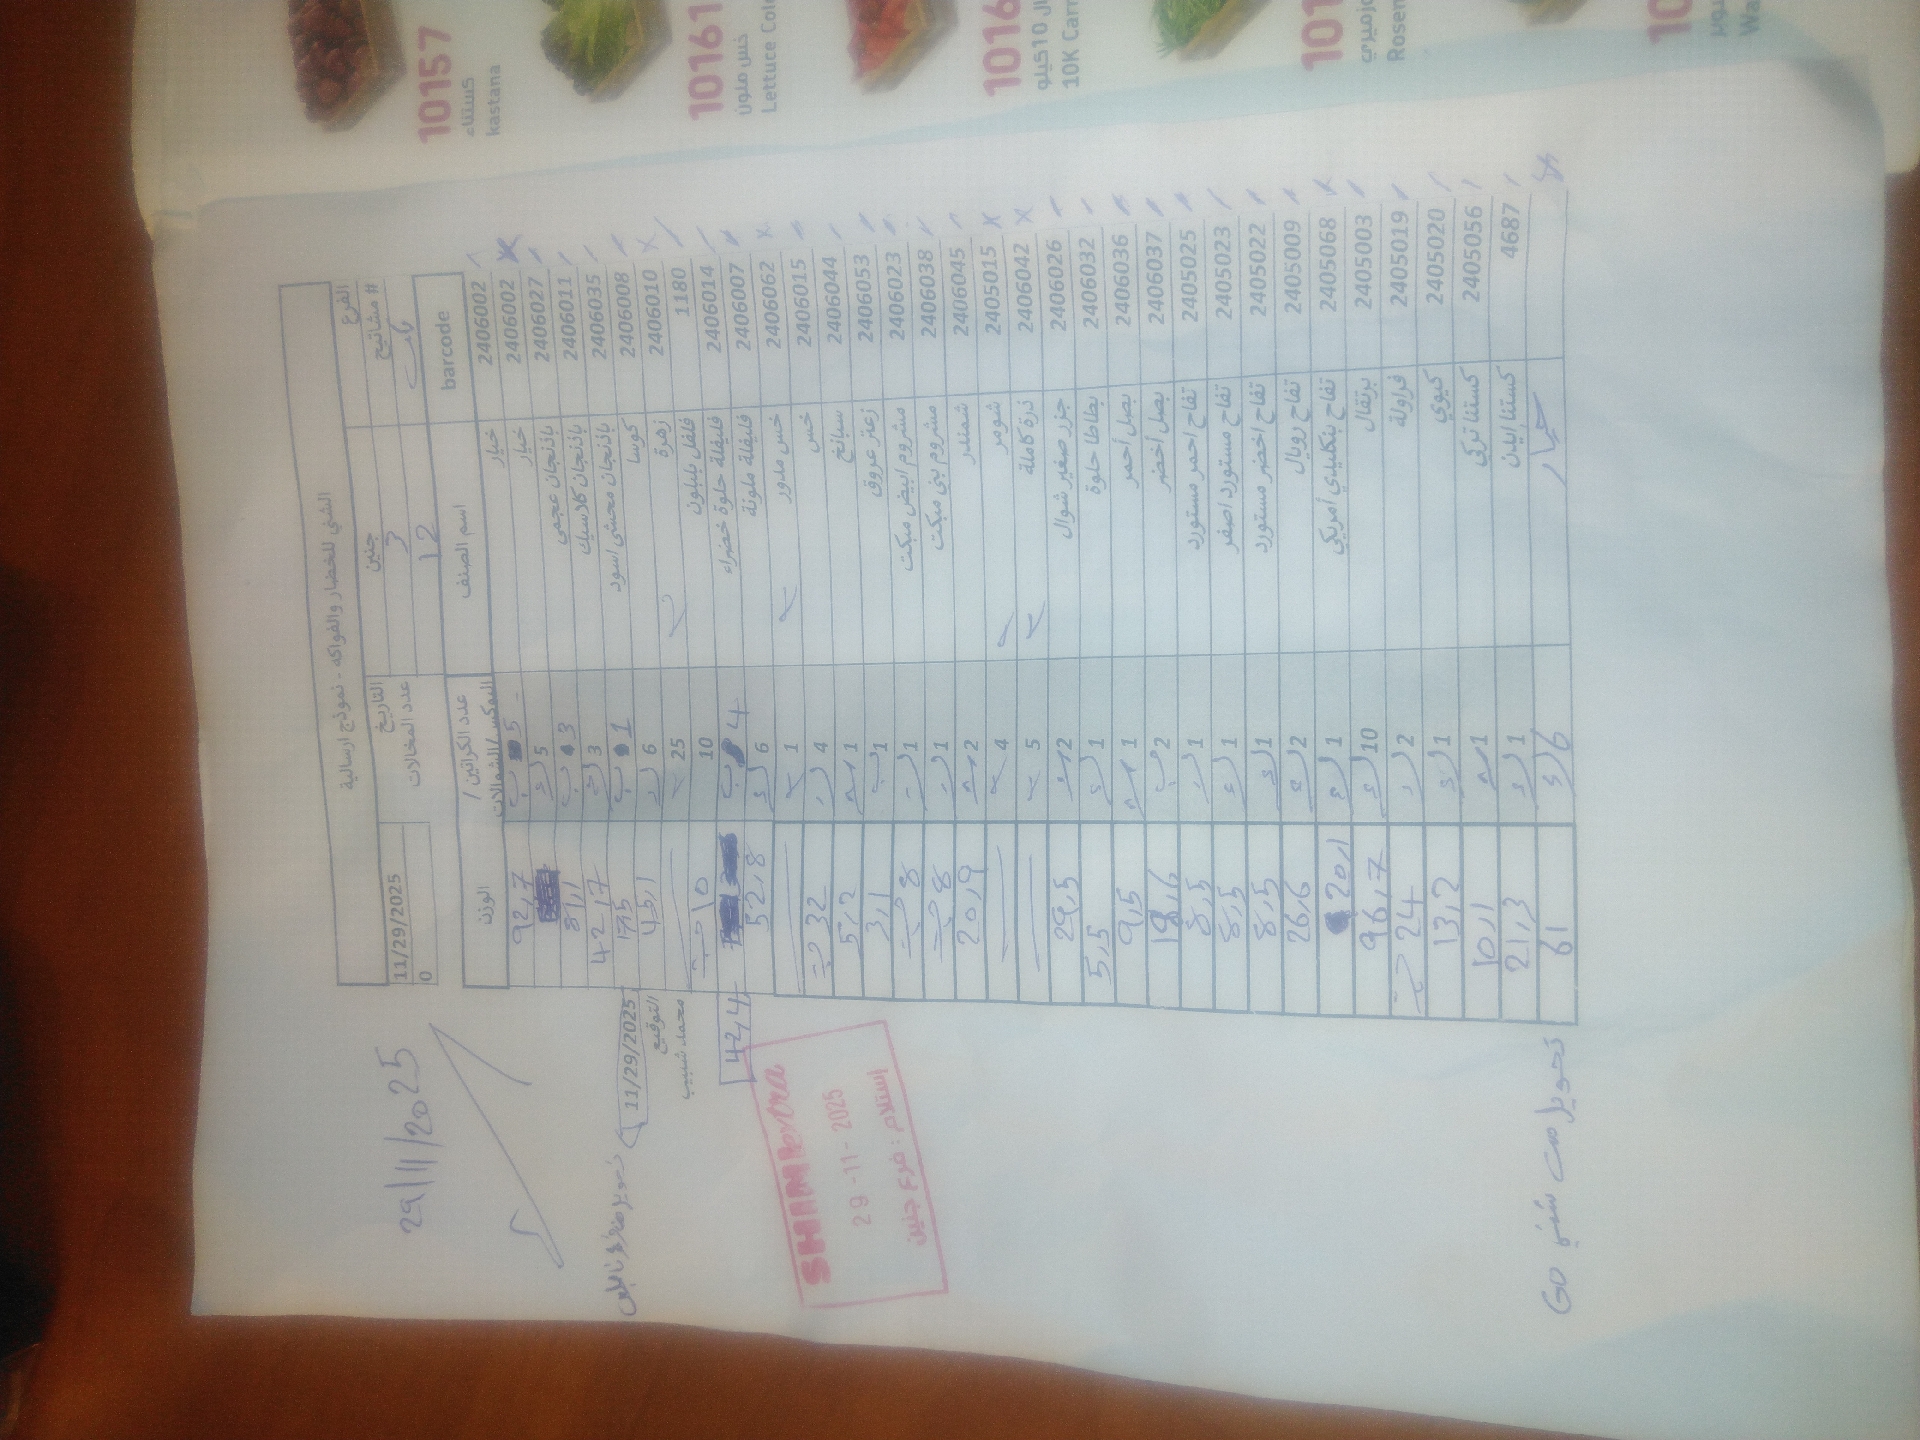 10157
كستناء
kastana
10161
خس ملون
Lettuce Col
1016
10 كيلو
10K Carr
101
روزميري
Rosen
10
Wa
الشني للخضار والفواكه - نموذج ارسالية
الفرع جنين التاريخ 11/29/2025
# مشاتيح 3 عدد المخالات 0
12
barcode اسم الصنف عدد الكراتين / البوكس/الشمالات الوزن
2406002 خيار 5 92,7
2406002 خيار 5
2406027 باذنجان عجمي 3 81,1
2406011 باذنجان كلاسيك 3 42,7
2406035 باذنجان محشي اسود 1 17,5
2406008 كوسا 6 45,1
2406010 زهرة 25
1180 فلفل بلبلون 10 10
2406014 فليفلة حلوة خضراء 4 42,4
2406007 فليفلة ملونة 6 52,8
2406062 خس مدور 1
2406015 خس 4 32
2406044 سبانخ 1 5,2
2406053 زعتر عروق 1 3,1
2406023 مشروم ابيض مبكت 1 8
2406038 مشروم بني مبكت 1 8
2406045 شمندر 2 20,9
2405015 شومر 4
2406042 ذرة كاملة 5
2406026 جزر صغير شوال 2 29,5
2406032 بطاطا حلوة 1 5,5
2406036 بصل أحمر 1 9,5
2406037 بصل أخضر 2 18,6
2405025 تفاح احمر مستورد 1 8,5
2405023 تفاح مستورد اصفر 1 8,5
2405022 تفاح اخضر مستورد 1 8,5
2405009 تفاح رويال 2 26,6
2405068 تفاح بنكليدي أمريكي 1 20,1
2405003 برتقال 10 96,7
2405019 فراولة 2 24
2405020 كيوي 1 13,2
2405056 كستنا تركي 1 10,1
4687 كستنا ايلين 1 21,3
خيار 6 61
29/11/2025
11/29/2025
التوقيع
محمد شبيب
SHINI extra
29-11-2025
استلام: فرع جنين
تحويل من شني GO